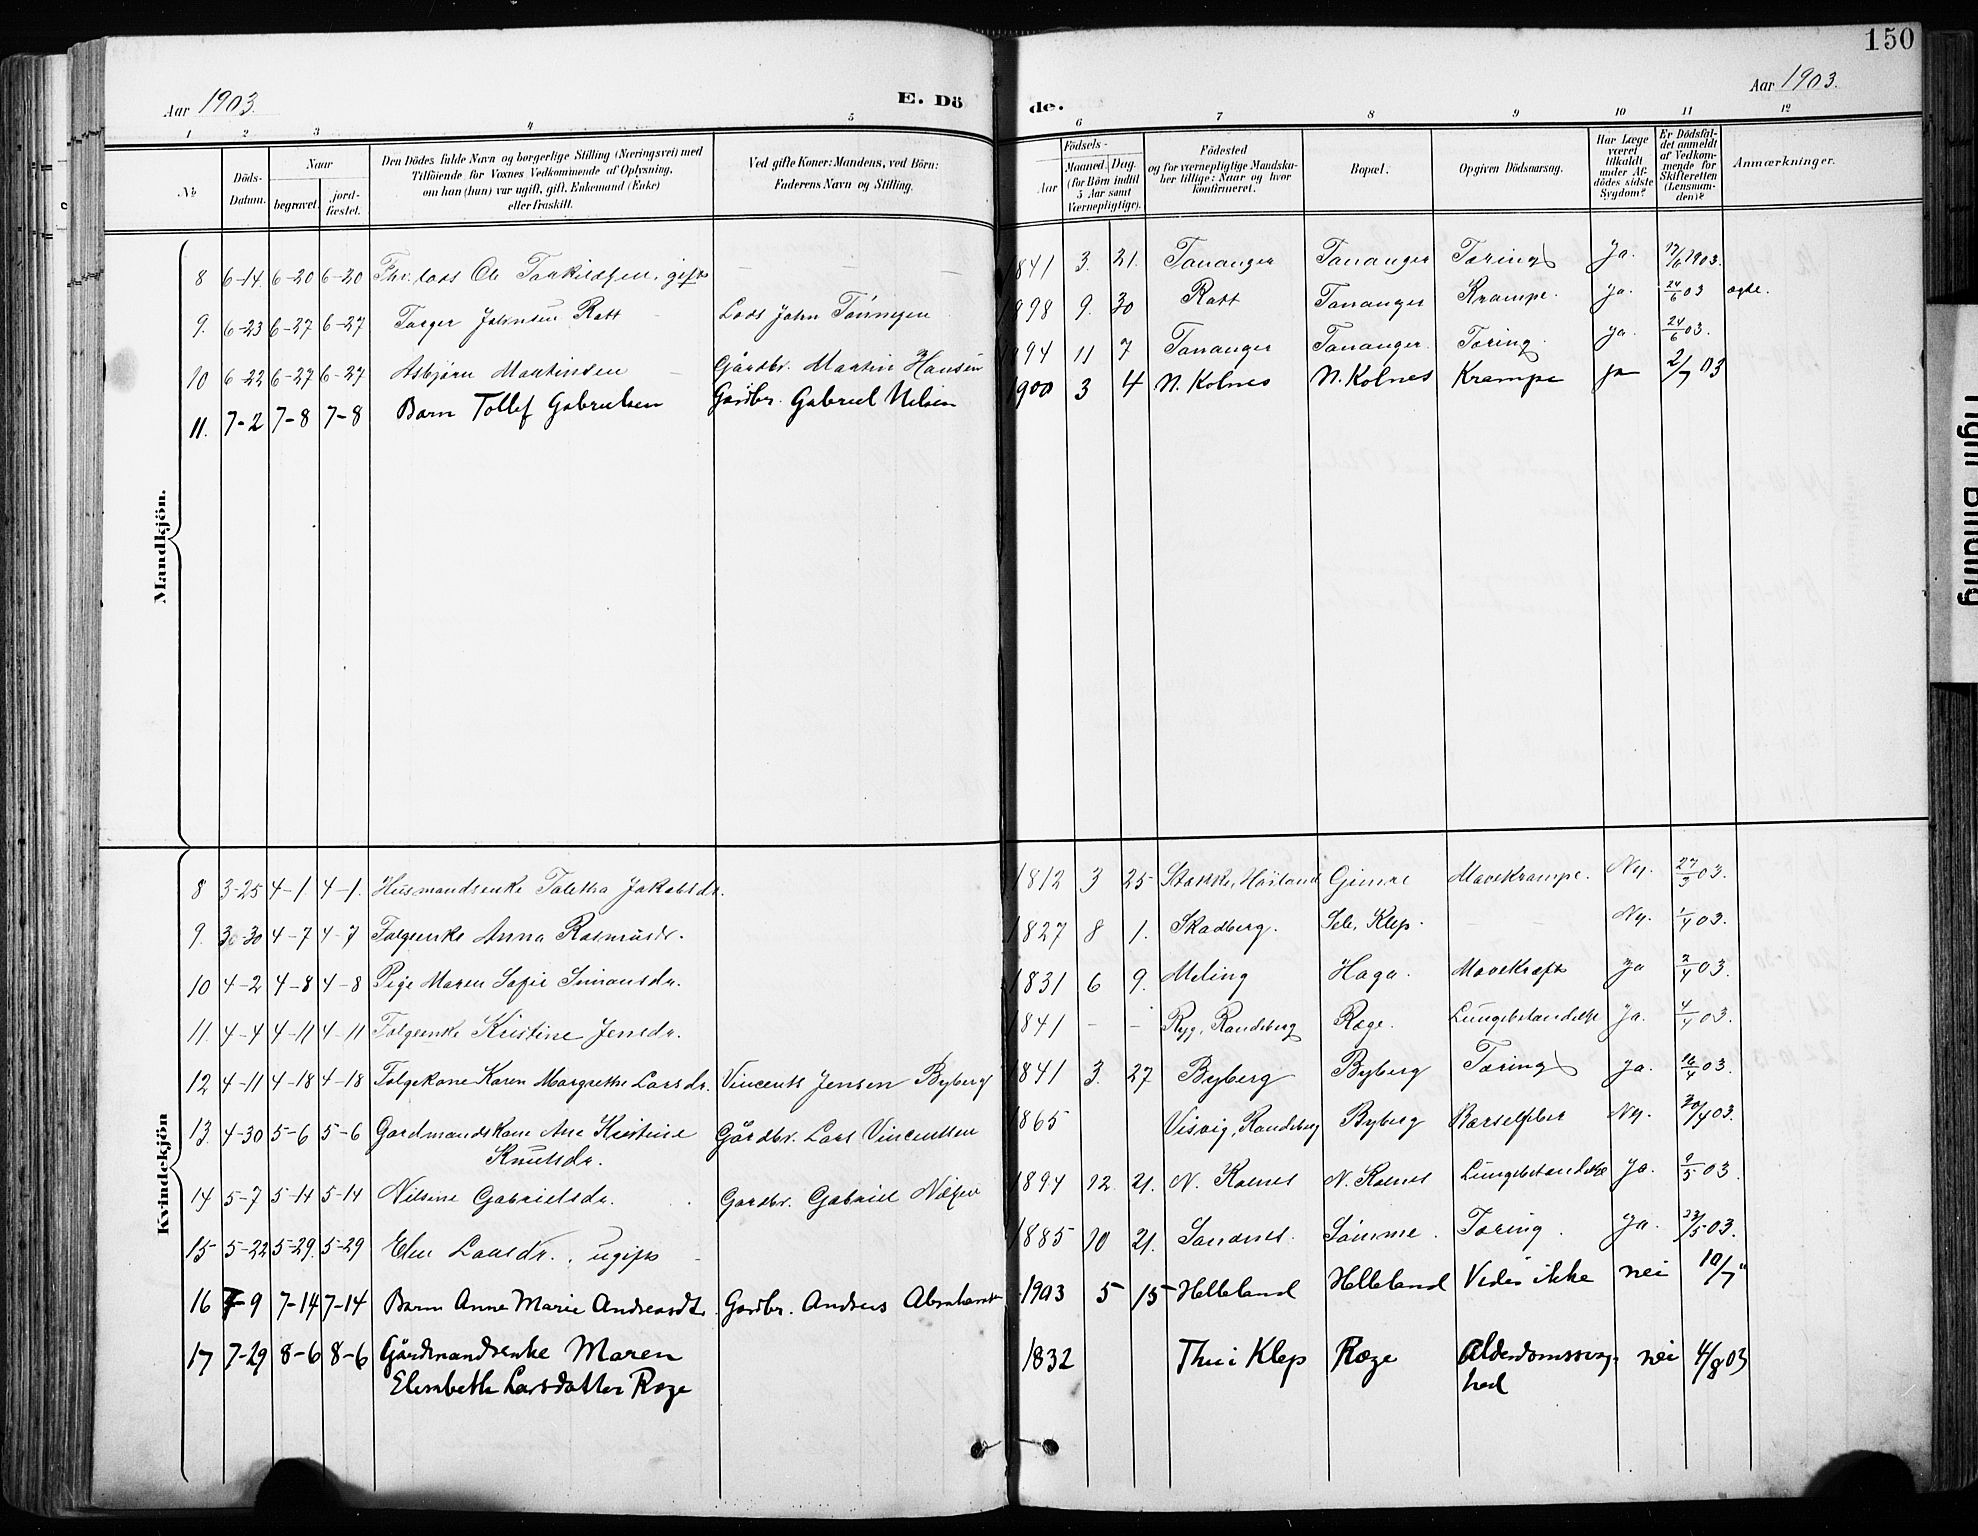 150
Aar 1903.
E. Dö de.
Aar 1903.
1 2 3 4 5 6 7 8 9 10 11 12
№
Döds-Datum.
Naar
begravet.
jord-fæstet.
Den Dödes fulde Navn og borgerlige Stilling (Næringsvei) med
Tilföiende for Voxnes Vedkommende af Oplysning,
om han (hun) var ugift, gift, Enkemand (Enke)
eller fraskilt.
Ved gifte Koner: Mandens, ved Börn:
Faderens Navn og Stilling.
Födsels-
Aar
Maaned. Dag.
(for Börn indtil
5 Aar samt
Værnepligtige).
Födested
og for værnepligtige Mandska-
ber tillige: Naar og hvor
konfirmeret.
Bopæl.
Opgiven Dödsaarsag.
Har Læge
været
tilkaldt
under Af-
dödes sidste
Sygdom?
Er Dödsfal-
det anmeldt
af Vedkom-
mende for
Skifteretten
(Lensman-
den)?
Anmærkninger.
Mandkjön.
8 6-14 6-20 6-20 Ole gift – – – 1841 3. 21. Tananger Tananger Tæring Ja. 17/6 1903.
9. 6-23 6-27 6-27 Torger Johnsen Rott Lods John Tönnesen 1898 9. 30 Rott Tananger Krampe. ja. 24/6 03 ægte.
10 6-22 6-27 6-27 Asbjörn Martinsen Gårdbr. Martin Hansen 1894 11 7 Tananger Tananger. Tæring. ja. 24/6 03.
11. 7-2 7-8 7-8 Barn Tollef Gabrielsen Gårdbr. Gabriel Nilsen 1900 3 4 N. Kolnes N. Kolnes Krampe ja 2/7 03
Kvindekjön
8 3-25 4-1 4-1. Husmandsenke Taletha Jakobsdr. 1812 3 25 Stokke, Höiland Gimre Mavekrampe. Nei. 27/3 03.
9. 3-30 4-7 4-7 Folgeenke Anna Rasmusdr. 1827 8 1. Skadberg. Sele, Klep. – – Nei. 1/4 03.
10 4-2 4-8 4-8 Pige Maren Sofie Simonsdr. 1831 6 9. Meling Haga. Mavekræft ja 2/4 03.
11. 4-4 4-11 4-11 Folgeenke Kristine Jensdr. 1841 – – Ryg, Randeberg Ræge. Lungebetændelse Ja. 4/4 03.
12 4-11 4-18 4-18 Folgekone Karen Margrethe Larsdr. Vincents Jensen Byberg 1841 3. 27 Byberg Byberg Tæring ja. 16/4 03.
13. 4-30 5-6 5-6 Gardmandskone Ane Kristine Gårdbr. Lars Vincentsen 1865 Visvig, Randeberg Byberg Barselfeber Nei. 30/4 03.
Knutsdr.
14 5-7 5-14 5-14 Nilsine Gabrielsdr. Gardbr. Gabriel Nilsen 1894 12 21. N. Kolnes N. Kolnes Lungebetændelse Ja. 9/5 03.
15 5-22 5-29. 5-29 Elen Larsdr. . ugift 1885 10 21. Sandnes. Sömme. Tæring. ja. 23/5 03.
16 7-9 7-14 7-14 Barn Anne Marie Andreasdt. Gardbr. Andreas 1903 5 15 Helleland Helleland Vides ikke nei 10/7 "
17 7-29 8-6 8-6 Gårdmandsenke Maren 1832 Thu i Klep Ræge Alderdomssvag- nei 4/8 03
Elisabeth Larsdatter Ræge hed